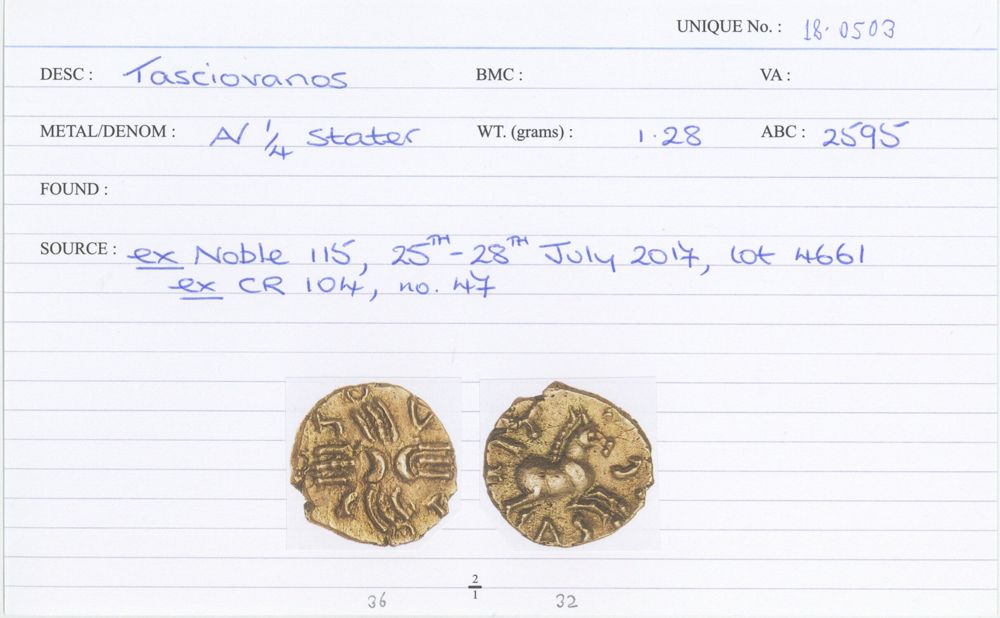 UNIQUE No. : 18.0503
DESC : Tasciovanos BMC : VA :
METAL/DENOM : AV 1/4 stater WT. (grams) : 1.28 ABC : 2595
FOUND :
SOURCE : ex Noble 115, 25TH - 28TH July 2017, lot 4661
ex CR 104, no. 47
2/1
36 32